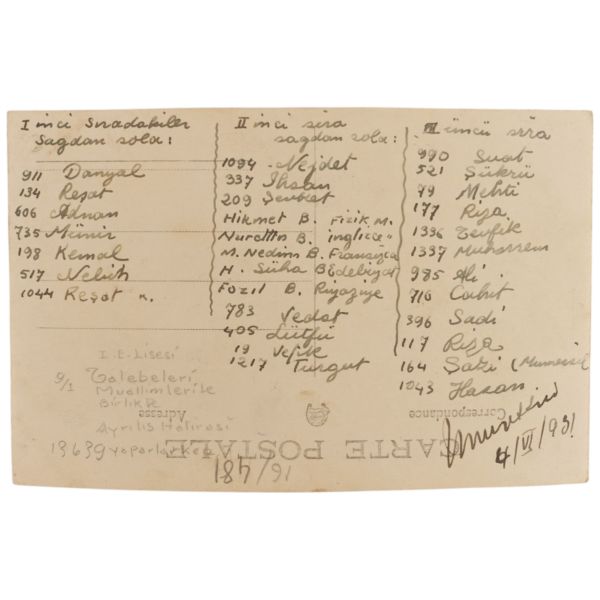 I inci Sıradakiler
Sagdan sola:
911 Danyal
134 Reşat
606 Adnan
735 Münir
198 Kemal
517 Nebih
1044 Reşat K.
II inci sıra
sagdan sola:
1094 Nejdet
337 İhsan
209 Şevket
Hikmet B. Fizik M.
Nurettin B. ingilice "
M. Nedim B. Fransızca
H. Süha B Edebiyat
Fazıl B. Riyaziye
783 Vedat
405 Lütfü
19 Vefik
1217 Turgut
III üncü sıra
990 Suat
521 Şükrü
79 Mehti
177 Rıza
1336 Tevfik
1337 Muharrem
985 Ali
716 Cahit
396 Sadi
117 Rıza
164 Sazi
1243 Hasan
I.E. Lisesi
9/1 Talebeleri
Muallimlerile
Birlikte
Ayrılış Hatırası
Yaparlarken
13639
Correspondance
Adresse
CARTE POSTALE
4/VI/931
16/481